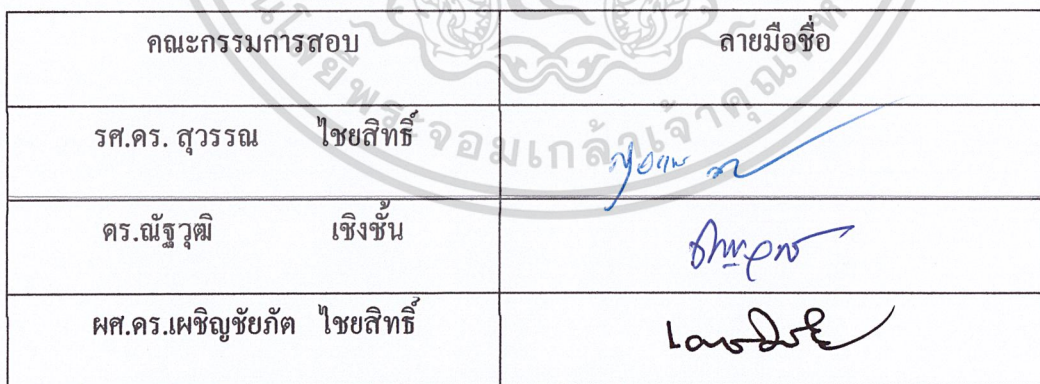 คณะกรรมการสอบ ลายมือชื่อ
รศ.ดร. สุวรรณ ไชยสิทธิ์
ดร.ณัฐวุฒิ เชิงชั้น
ผศ.ดร.เผชิญชัยภัต ไชยสิทธิ์
โลยีพระจอมเกล้าเจ้าคุณท